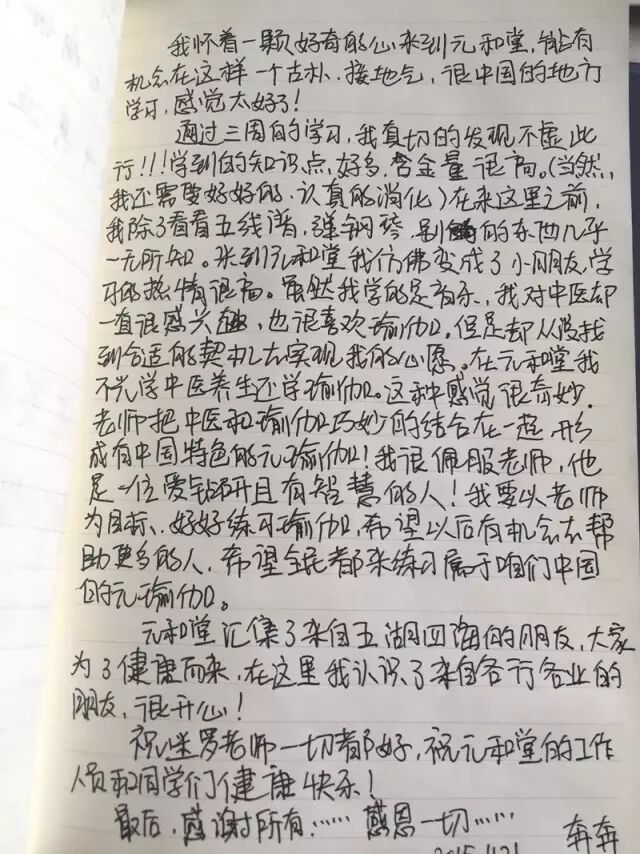 我怀着一颗好奇的心来到元和堂,能有
机会在这样一个古朴、接地气,很中国的地方
学习,感觉太好了!
通过三周的学习,我真切的发现不虚此
行!!!学到的知识点好多,含金量很高。(当然,
我还需要好好的、认真的消化)在来这里之前,
我除了看看五线谱,弹钢琴,别的东西几乎
一无所知。来到元和堂我仿佛变成了小朋友,学
习的热情很高。虽然我学的是音乐,我对中医却
一直很感兴趣,也很喜欢瑜伽。但是却从没找
到合适的契机去实现我的心愿。在元和堂我
不光学中医养生还学瑜伽。这种感觉很奇妙.
老师把中医和瑜伽巧妙的结合在一起,形
成有中国特色的元瑜伽!我很佩服老师,他
是一位爱钻研且有智慧的人!我要以老师
为目标、好好练习瑜伽,希望以后有机会去帮
助更多的人,希望全民都来练习属于咱们中国
的元瑜伽。
元和堂汇集了来自五湖四海的朋友,大家
为了健康而来,在这里我认识了来自各行各业的
朋友,很开心!
祝坐罗老师一切都好,祝元和堂的工作
人员和同学们健康快乐!
最后,感谢所有…… 感恩一切…… 奔奔